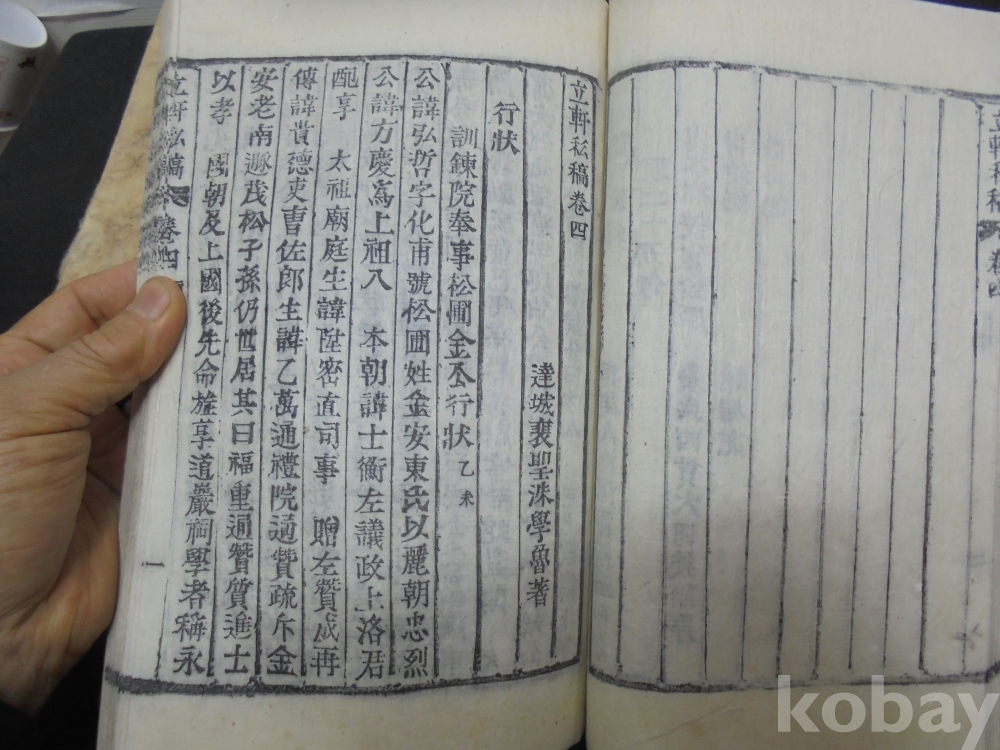 立軒私稿
卷四
立軒私稿卷四
達城裵聖洙學魯著
行狀
訓鍊院奉事松圃金公行狀 乙未
公諱弘哲字化甫號松圃姓金安東氏以麗朝忠烈
公諱方慶爲上祖入 本朝諱士衡左議政上洛君
配享 太祖廟庭生諱陞密直司事 贈左贊成再
傳諱貴德吏曹佐郎生諱乙萬通禮院通贊疏斥金
安老南遯茂松子孫仍世居其曰福重通贊質進士
以孝 國朝及上國後先命旌享道巖祠學者稱永
立軒弘稿
卷四
一
kobay